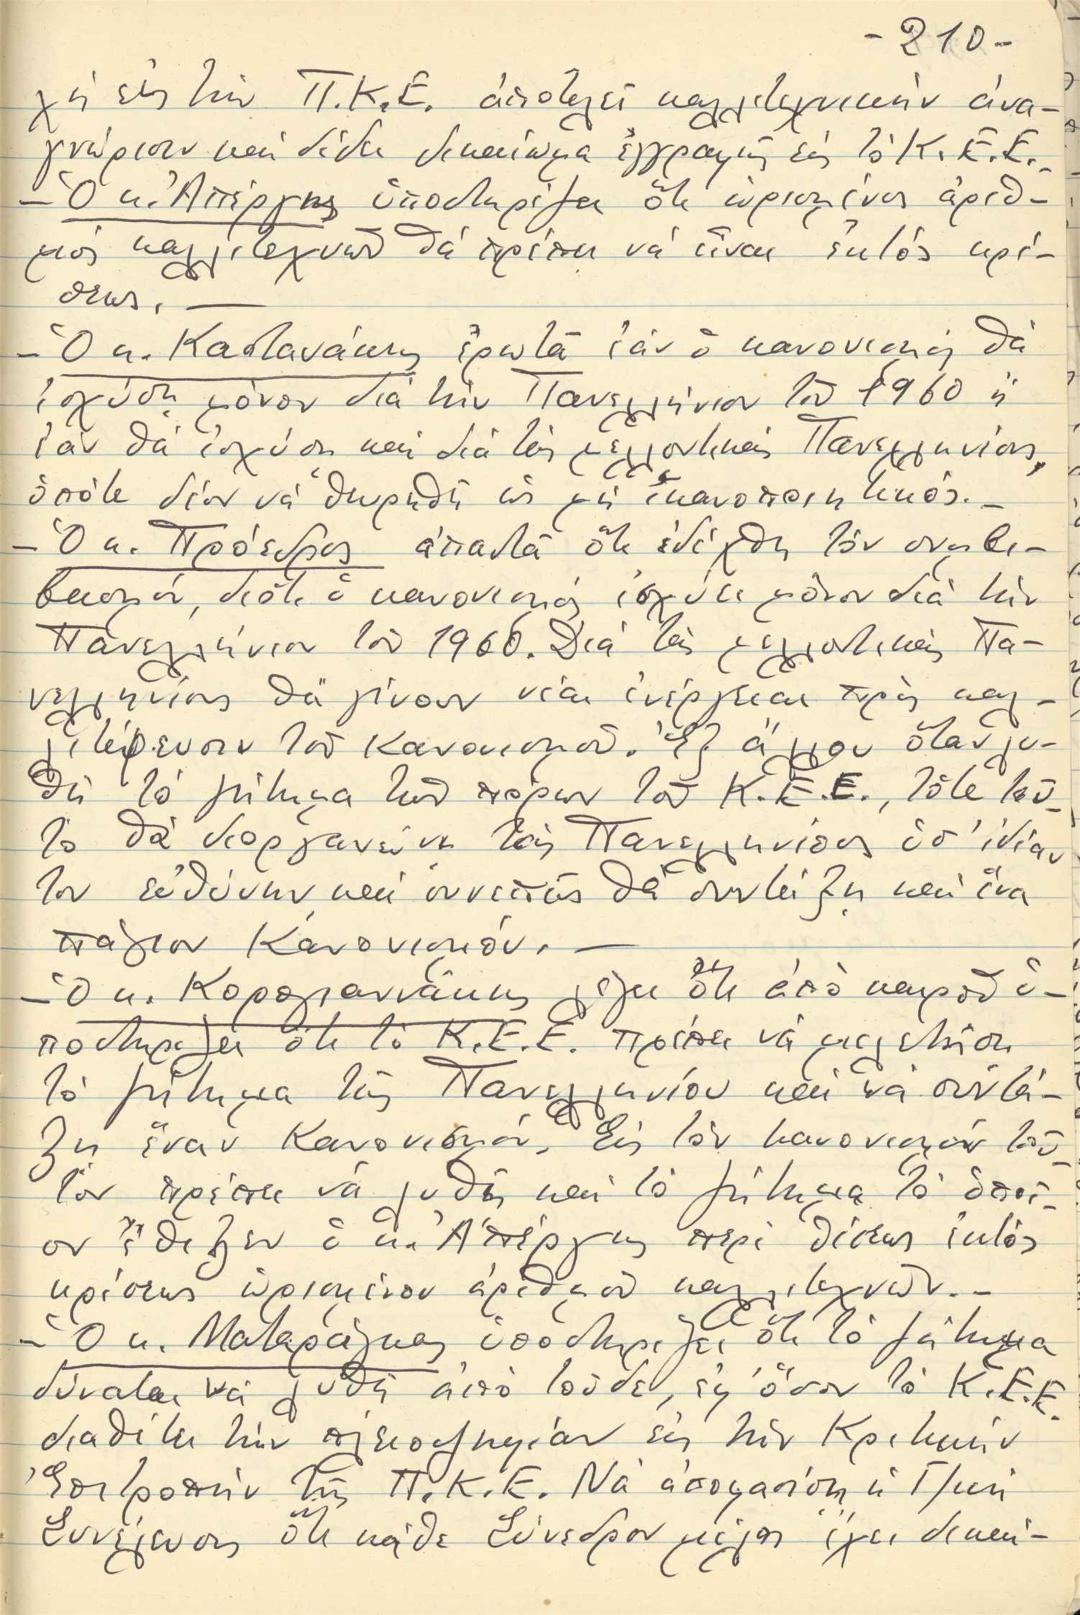 -210-
χή εἰς τὴν Π.Κ.Ε. ἀποτελεῖ καλλιτεχνικὴν ἀνα-
γνώρισιν καὶ δίδει δικαίωμα ἐγγραφῆς εἰς τὸ Κ.Ε.Ε.-
-Ὁ κ. Ἀπέργης ὑποστηρίζει ὅτι ὡρισμένος ἀριθ-
μὸς καλλιτεχνῶν θὰ πρέπει νὰ εἶναι ἐκτὸς κρί-
σεως.-
-Ὁ κ. Καστανάκης ἐρωτᾶ ἐὰν ὁ κανονισμὸς θὰ
ἰσχύσῃ μόνον διὰ τὴν Πανελλήνιον τοῦ 1960 ἢ
ἐὰν θὰ ἰσχύσῃ καὶ διὰ τὰς μελλοντικὰς Πανελληνίους,
ὁπότε δέον νὰ θεωρηθῇ ὡς μὴ ἱκανοποιητικός.-
-Ὁ κ. Πρόεδρος ἀπαντᾶ ὅτι ἐδέχθη τὸν συμβι-
βασμόν, διότι ὁ κανονισμὸς ἰσχύει μόνον διὰ τὴν
Πανελλήνιον τοῦ 1960. Διὰ τὰς μελλοντικὰς Πα-
νελληνίους θὰ γίνουν νέαι ἐνέργειαι πρὸς καλ-
λιτέρευσιν τοῦ Κανονισμοῦ. Ἐξ ἄλλου ὅταν λυ-
θῇ τὸ ζήτημα τῶν πόρων τοῦ Κ.Ε.Ε., τότε τοῦ-
το θὰ διοργανώνῃ τὰς Πανελληνίους ὑπ' ἰδίαν
του εὐθύνην καὶ συνεπῶς θὰ συντάξῃ καὶ ἕνα
πάγιον Κανονισμόν.-
-Ὁ κ. Κορογιαννάκης λέγει ὅτι ἀπὸ καιροῦ ὑ-
ποστηρίζει ὅτι τὸ Κ.Ε.Ε. πρέπει νὰ μελετήσῃ
τὸ ζήτημα τῆς Πανελληνίου καὶ νὰ συντά-
ξῃ ἕναν Κανονισμόν. Εἰς τὸν κανονισμὸν τοῦ-
τον πρέπει νὰ λυθῇ καὶ τὸ ζήτημα τὸ ὁποῖ-
ον ἔθιξεν ὁ κ. Ἀπέργης περὶ θέσεως ἐκτὸς
κρίσεως ὡρισμένου ἀριθμοῦ καλλιτεχνῶν.-
-Ὁ κ. Ματαράγκας ὑποστηρίζει ὅτι τὸ ζήτημα
δύναται νὰ λυθῇ ἀπὸ τοῦδε, ἐφ' ὅσον τὸ Κ.Ε.Ε.
διαθέτει τὴν πλειοψηφίαν εἰς τὴν Κριτικὴν
Ἐπιτροπὴν τῆς Π.Κ.Ε. Νὰ ἀποφασίσῃ ἡ Γενικὴ
Συνέλευσις ὅτι κάθε Σύνεδρον μέλος ἔχει δικαί-